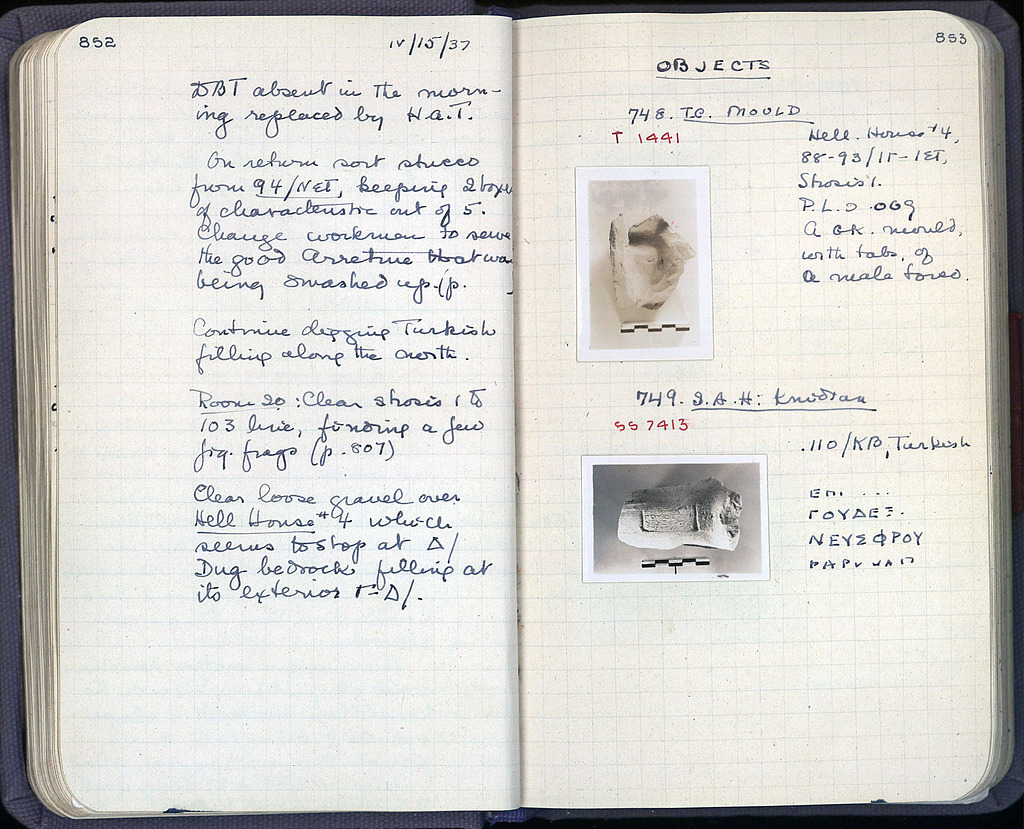 852
IV/15/37
DBT absent in the morn-
ing replaced by H.A.T.
On return sort stucco
from 94/ΝΕΤ, keeping 2 boxes
of characteristic out of 5.
Change workmen to save
the good Arretine that was
being smashed up. (p.
Continue digging Turkish
filling along the north.
Room 20: Clear strosis 1 to
103 line, finding a few
frg. frags (p. 807)
Clear loose gravel over
Hell House #4 which
seems to stop at Δ/
Dug bedrock filling at
its exterior Γ-Δ/.
853
OBJECTS
748. T.C. MOULD
T 1441
Hell. House #4,
88-93/ΙΓ-ΙΣΤ,
Strosis 1.
P.L. 0.069
A Gk. mould,
with tabs, of
a male torso.
749. S.A.H: Knidian
SS 7413
.110/ΚΒ, Turkish
ΕΠΙ ...
ΓΟΥΔΕΞ.
ΝΕΥΣΦΡΟΥ